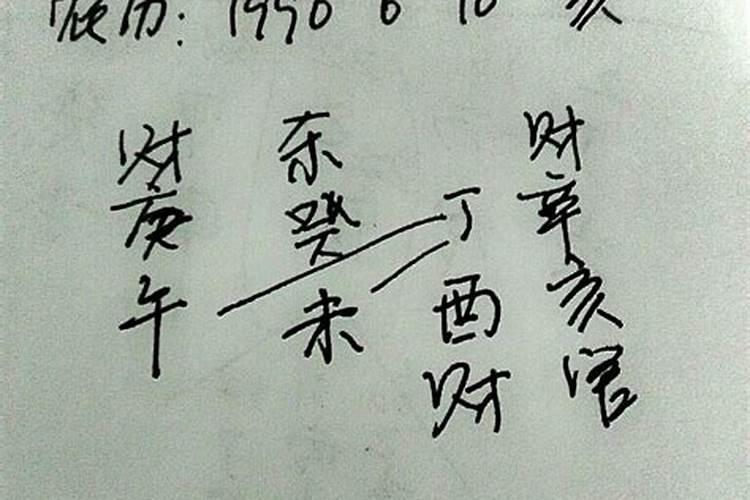 历: 1990 6 10 亥
财 杀 财
庚 癸 丁 辛
午 未 酉 亥
财 官